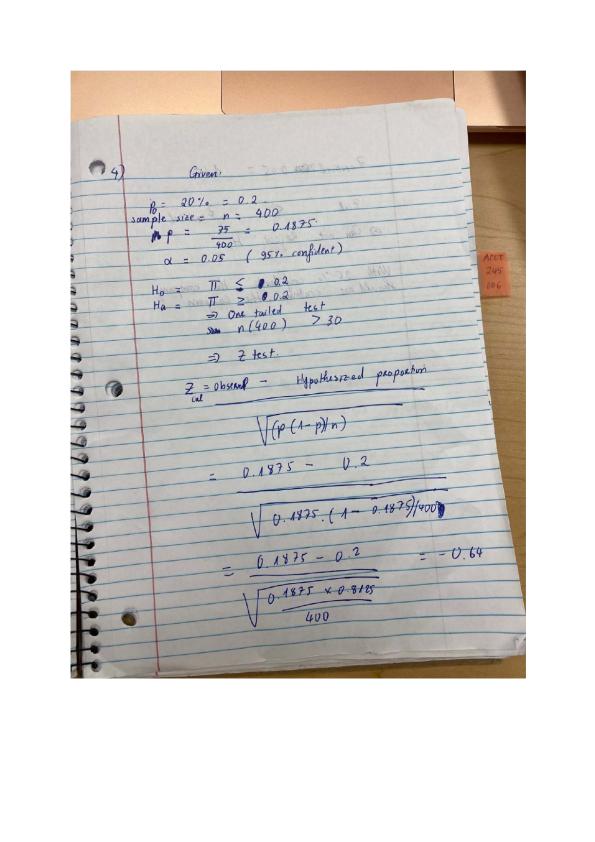 4) Given:
P₀ = 20% = 0.2
sample size = n = 400
p = 75/400 = 0.1875
α = 0.05 (95% confident)
H₀ = π ≤ 0.2
Ha = π ≥ 0.2
⇒ One tailed test
n(400) > 30
⇒ Z test.
Z cal = observed - Hypothesized proportion
√(p(1-p)/n)
= 0.1875 - 0.2
√0.1875.(1-0.1875)/400
= 0.1875 - 0.2 = -0.64
√0.1875 × 0.8125
400
ACCT
245
006